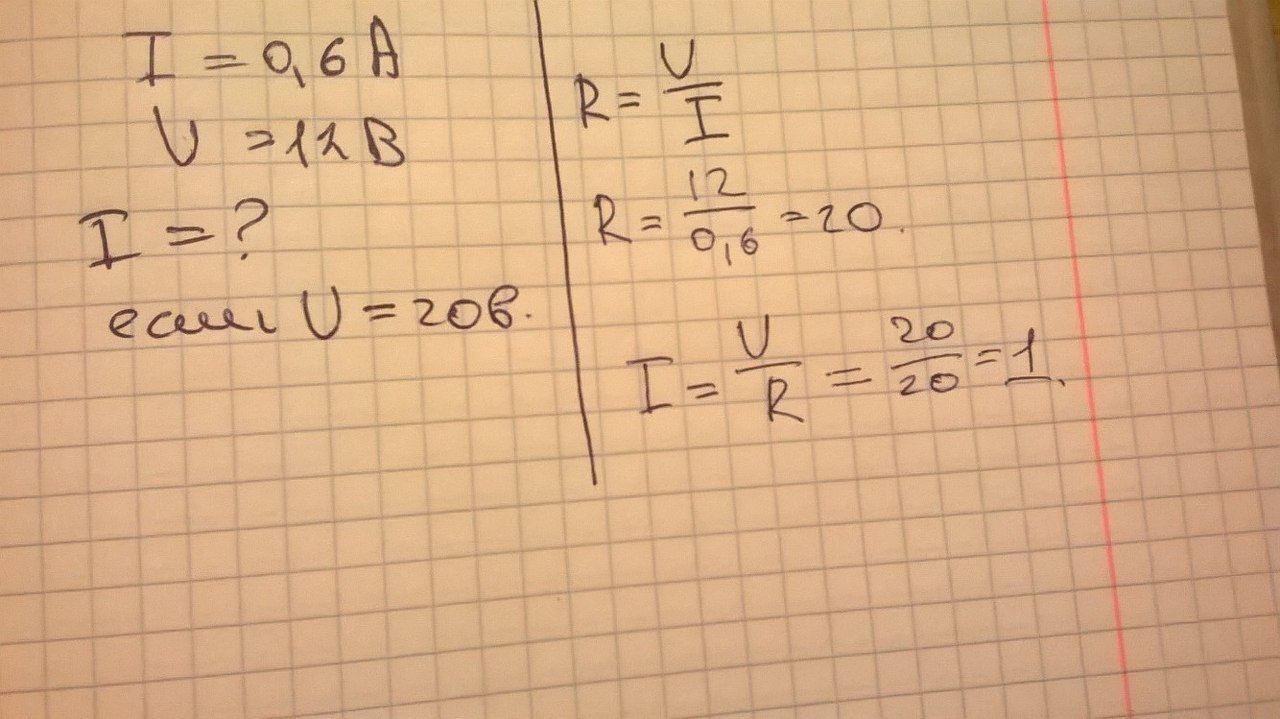 I = 0,6 А
U = 12 В
I = ?
если U = 20в.
R = U/I
R = 12/0,6 = 20.
I = U/R = 20/20 = 1.